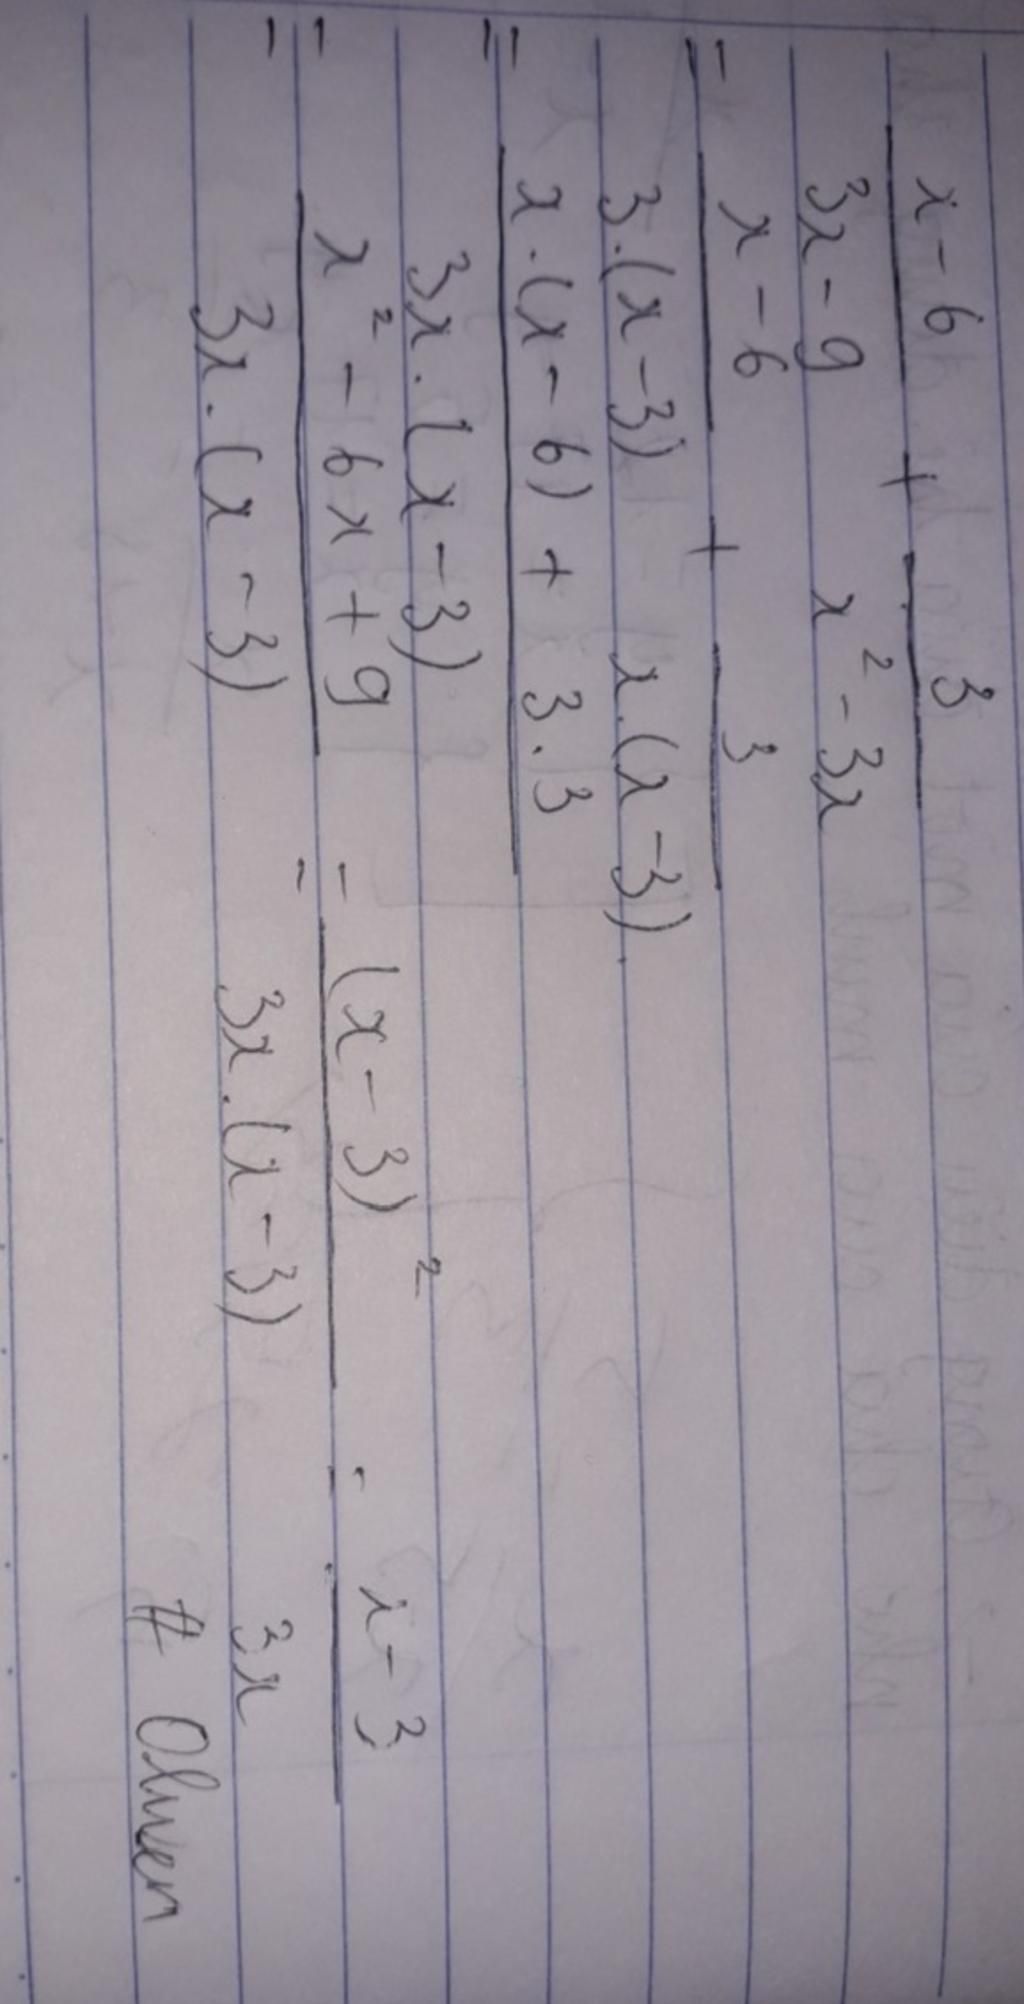 x - 6 / 3x - 9 + 3 / x² - 3x
= x - 6 / 3.(x - 3) + 3 / x.(x - 3)
= x.(x - 6) + 3.3 / 3x.(x - 3)
= x² - 6x + 9 / 3x.(x - 3) = (x - 3)² / 3x.(x - 3) = x - 3 / 3x